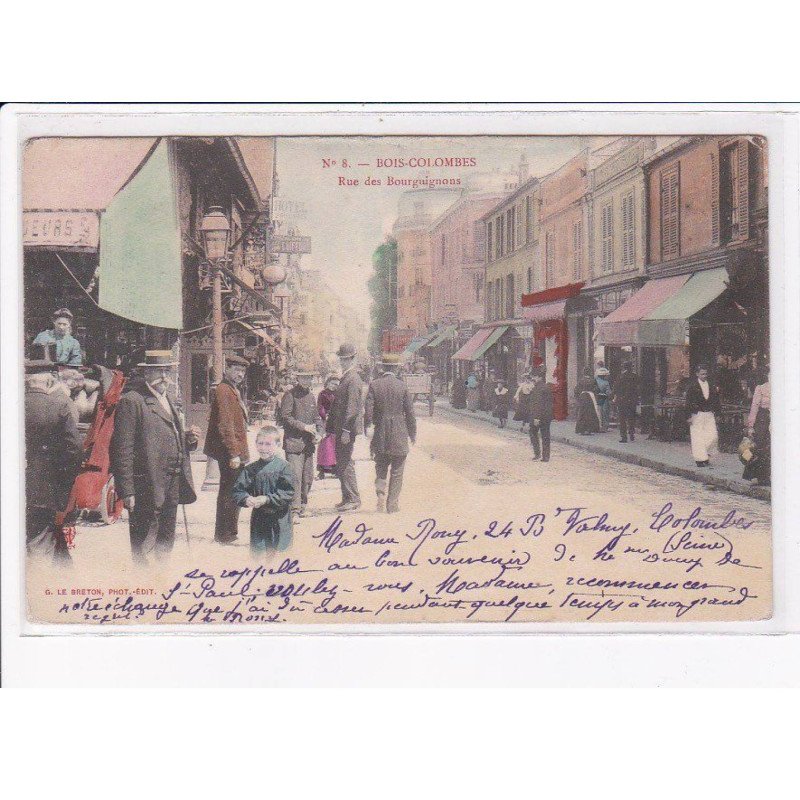 Nº 8. — BOIS-COLOMBES
Rue des Bourguignons
HOTEL
EURS
Madame Rouy, 24 Bd Valmy, Colombes
(Seine)
se rappelle au bon souvenir de
St Paul, voulez-vous, Madame, recommencer
notre échange que j'ai dû cesser pendant quelque temps à mon grand
regret.
G. LE BRETON, PHOT.-ÉDIT.